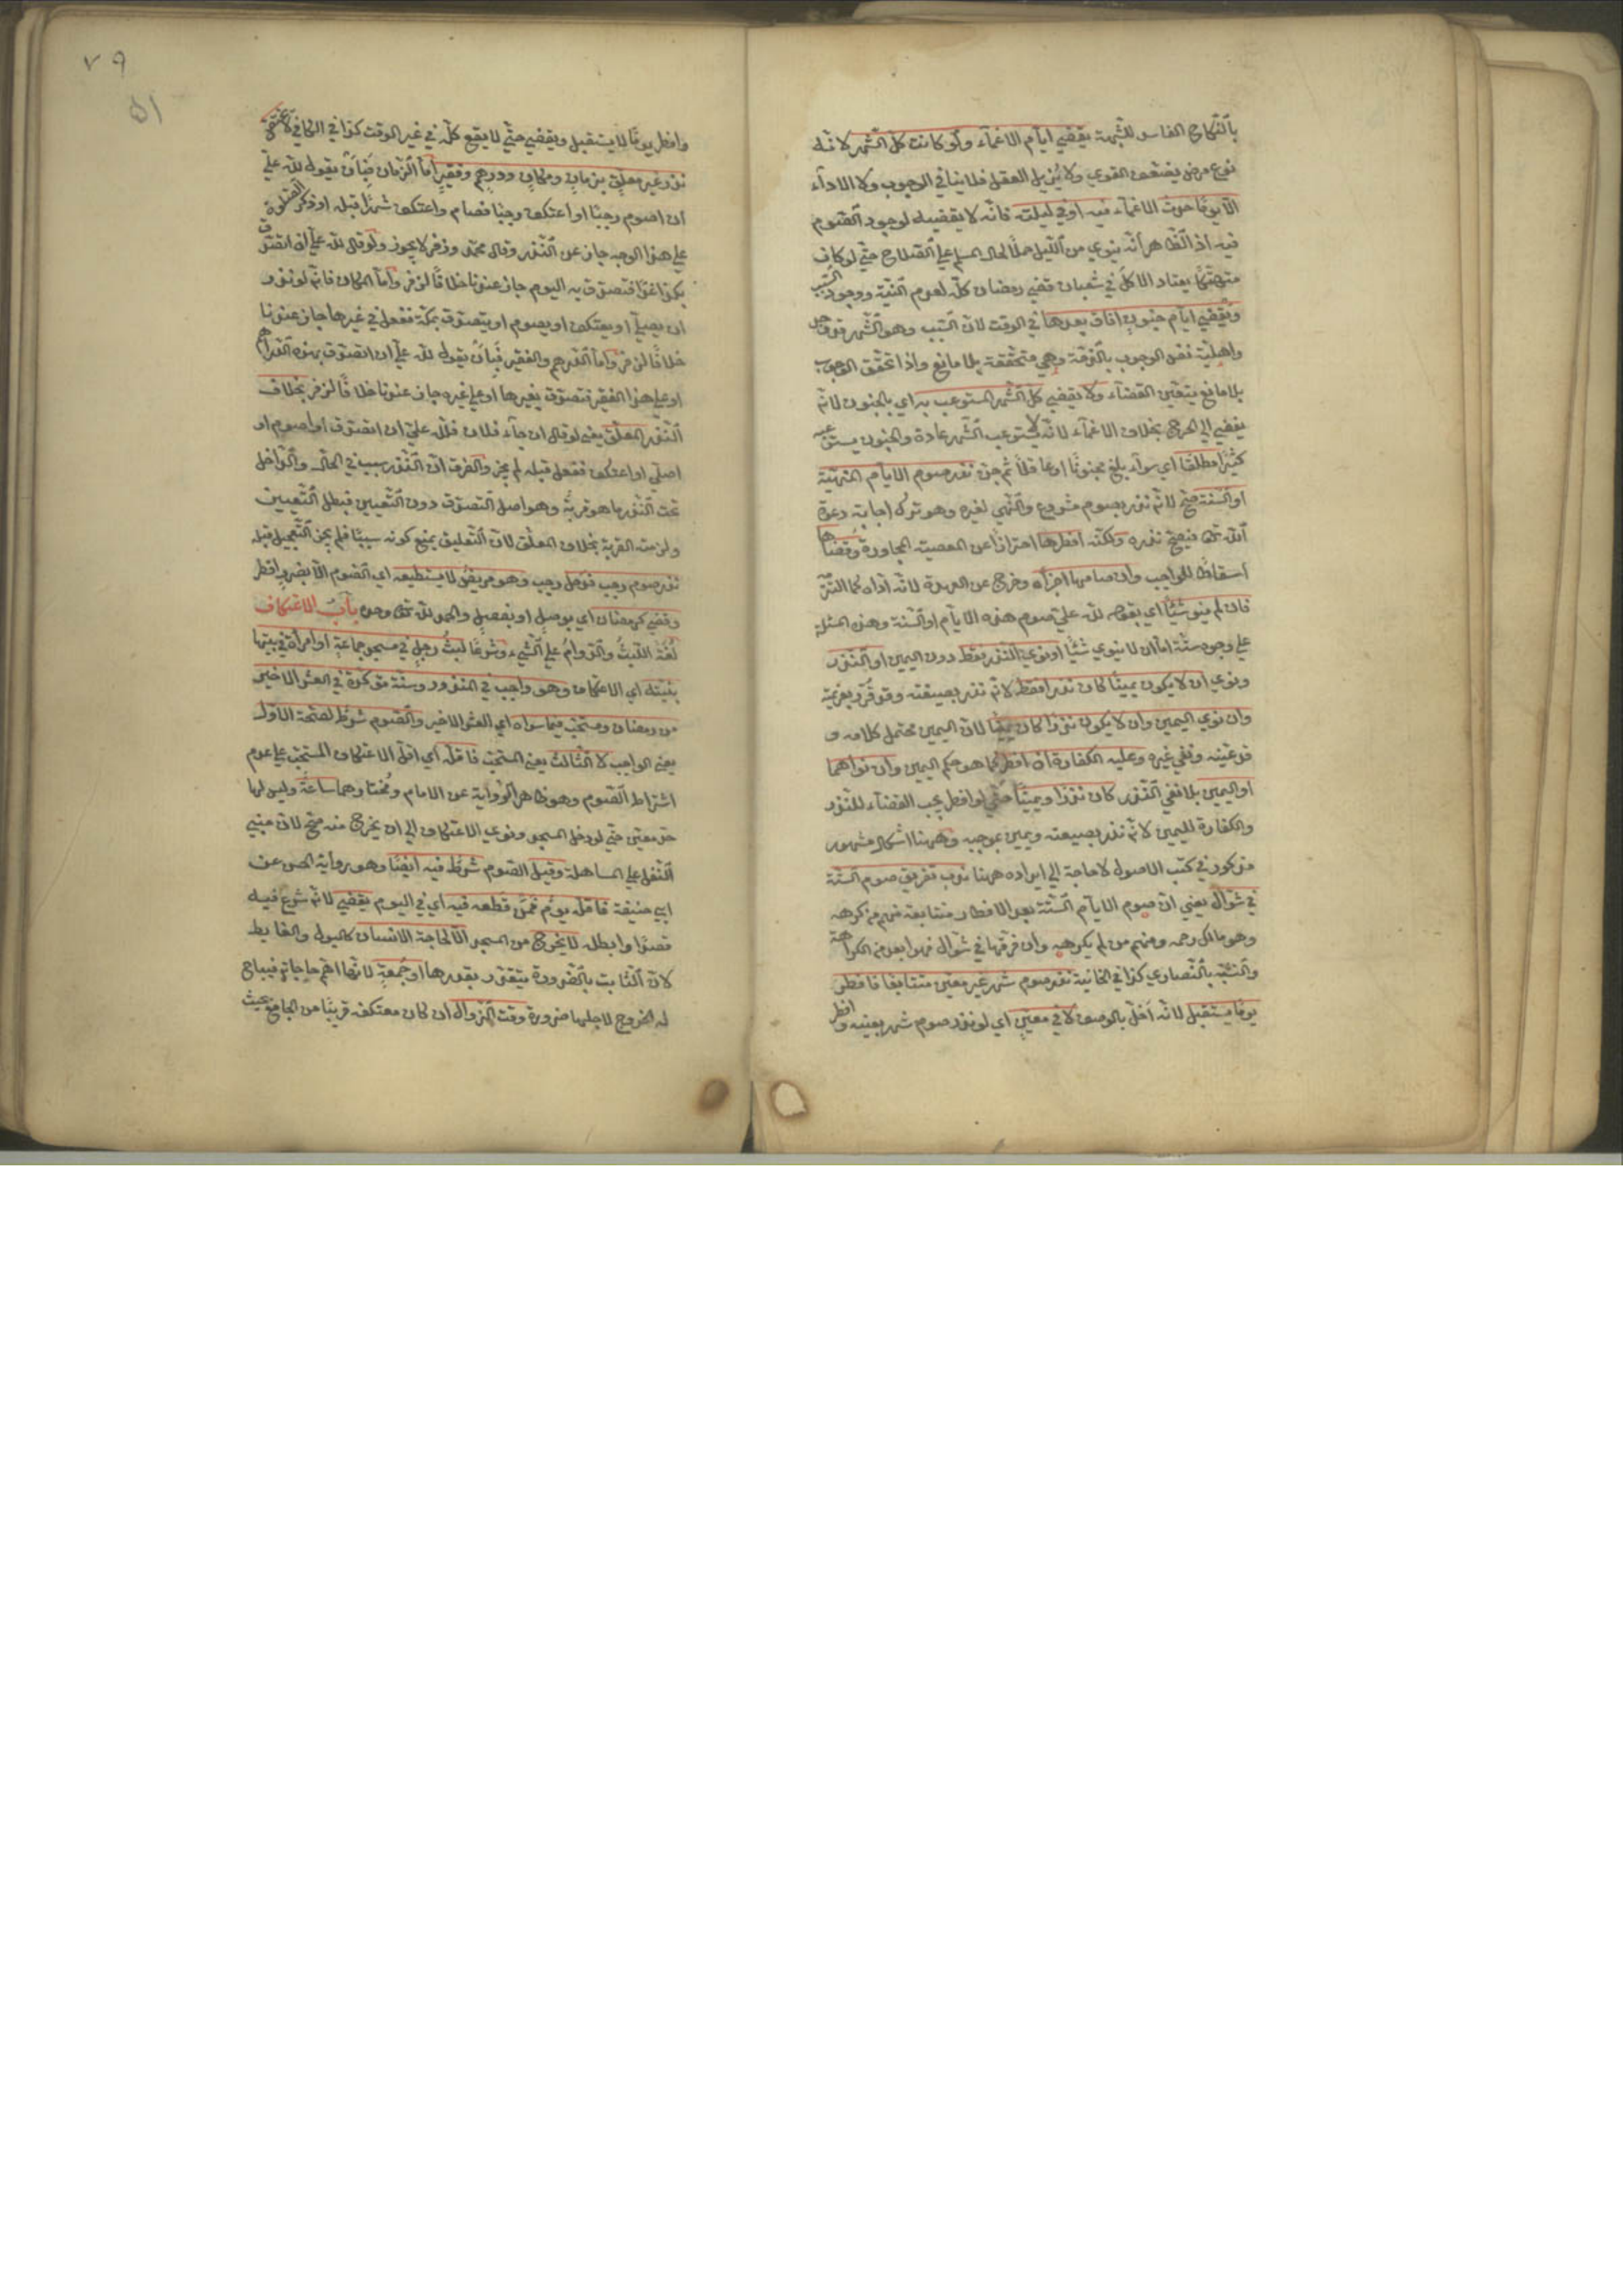 بالنكاح الفاسد للشبهة يقضي ايام الاغماء ولو كانت كل الشهر لانه
نوع مرض يضعف القوي ولا يزيل العقل فلا ينافي الوجوب ولا الاداء
الا يوما حدث الاغماء فيه او في ليلته فانه لا يقضيه لوجود الصوم
فيه اذ الظاهر انه ينوي من الليل حملا لحال المسلم علي الصلاح حتي لو كان
متهتكا يعتاد الاكل في شعبان قضي رمضان كله لعدم النية ووجود السبب
ويقضي ايام جنون افاق بعدها في الوقت لان السبب وهو الشهر قد وجد
واهلية نفس الوجوب بالذمة وهي متحققة بلا مانع واذا تحقق الوجوب
بلا مانع يتعين القضاء ولا يقضي كل الشهر المستوعب به اي بالجنون لانه
يفضي الي الحرج بخلاف الاغماء لانه لا يستوعب الشهر عادة والجنون يستوعبه
كثيرا مطلقا اي سواء بلغ مجنونا او عاقلا ثم جن نذر صوم الايام المنهية
او السنة صح لانه نذر بصوم مشروع والنهي لغيره وهو ترك اجابة دعوة
الله تعالى فيصح نذره ولكنه افطرها احترازا عن المعصية المجاورة وقضاها
اسقاطا للواجب وان صامها اجزأه وخرج عن العهدة لانه اداه كما التزم
فان لم ينو شيئا اي بقوله لله علي صوم هذه الايام او السنة وهذه المسئلة
علي وجوه ستة اما ان لا ينوي شيئا او نوي النذر فقط دون اليمين او النذر
ونوي ان لا يكون يمينا كان نذرا فقط لانه نذر بصيغته وقد قرر بعزيمته
وان نوي اليمين وان لا يكون نذرا كان يمينا لان اليمين محتمل كلامه و
قد عينه ونفي غيره وعليه الكفارة ان افطر كما هو حكم اليمين وان نواهما
او اليمين بلا نفي النذر كان نذرا ويمينا حتي لو افطر يجب القضاء للنذر
والكفارة لليمين لانه نذر بصيغته ويمين بموجبه وههنا اشكال مشهور
مذكور في كتب الاصول لا حاجة الي ايراده ههنا ندب تفريق صوم الستة
في شوال يعني ان صوم الايام الستة بعد الافطار متتابعة فمنهم من كرهه
وهو مالك رحمه ومنهم من لم يكرهه وان فرقها في شوال فهو ابعد من الكراهة
والتشبه بالنصاري كذا في الخانية نذر صوم شهر غير معين متتابعا فافطر
يوما يستقبل لانه اخل بالوصف لا في معين اي لو نذر صوم شهر بعينه و افطر
٧٩
٥١
وافطر يوما لا يستقبل ويقضي حتي لا يقع كله في غير الوقت كذا في الكافي لا يختص
نذر غير معلق بزمان ومكان ودرهم وفقير اما الزمان فبان يقول لله علي
ان اصوم رجبا او اعتكف رجبا فصام واعتكف شهرا قبله او ذكر الصلوة
علي هذا الوجه جاز عن النذر وقال محمد وزفر لا يجوز ولو قال لله علي ان اتصدق
بكذا غدا فتصدق به اليوم جاز عندنا خلافا لزفر واما المكان فانه لو نذر
ان يصلي او يعتكف او يصوم او يتصدق بمكة ففعل في غيرها جاز عندنا
خلافا لزفر واما الدرهم والفقير فبان يقول لله علي ان اتصدق بهذه الدراهم
او علي هذا الفقير فتصدق بغيرها او علي غيره جاز عندنا خلافا لزفر بخلاف
النذر المعلق يعني لو قال ان جاء فلان فلله علي ان اتصدق او اصوم او
اصلي او اعتكف ففعل قبله لم يجز والفرق ان النذر سبب في الحال والداخل
تحت النذر ما هو قربة وهو اصل التصدق دون التعيين فبطل التعيين
ولزمته القربة بخلاف المعلق لان التعليق يمنع كونه سببا فلم يجز التعجيل قبله
نذر صوم رجب فدخل رجب وهو مريض لا يستطيعه اي الصوم الا بضرر افطر
وقضي كرمضان اي بوصل او بفصل والحمد لله تعالى وحده باب الاعتكاف
لغة اللبث والدوام علي الشيء وشرعا لبث رجل في مسجد جماعة او امرأة في بيتها
بنيته اي الاعتكاف وهو واجب في المنذور وسنة مؤكدة في العشر الاخير
من رمضان ومستحب فيما سواه اي العشر الاخير والصوم شرط لصحة الاول
يعني الواجب لا الثالث يعني المستحب فاقله اي اقل الاعتكاف المستحب علي عدم
اشتراط الصوم وهو ظاهر الرواية عن الامام ومختارهما ساعة وليس لها
حد معين حتي لو دخل المسجد ونوي الاعتكاف الي ان يخرج منه صح لان مبني
النفل علي المساهلة وقيل الصوم شرط فيه ايضا وهو رواية الحسن عن
ابي حنيفة فاقله يوم فمن قطعه فيه اي في اليوم يقضي لانه شرع فيه
قصدا وابطله لا يخرج من المسجد الا لحاجة الانسان كالبول والغايط
لان الثابت بالضرورة يتقدر بقدرها او جمعة لانها اهم حاجاته فيباح
له الخروج لاجلها ضرورة وقت الزوال ان كان معتكفه قريبا من الجامع بحيث